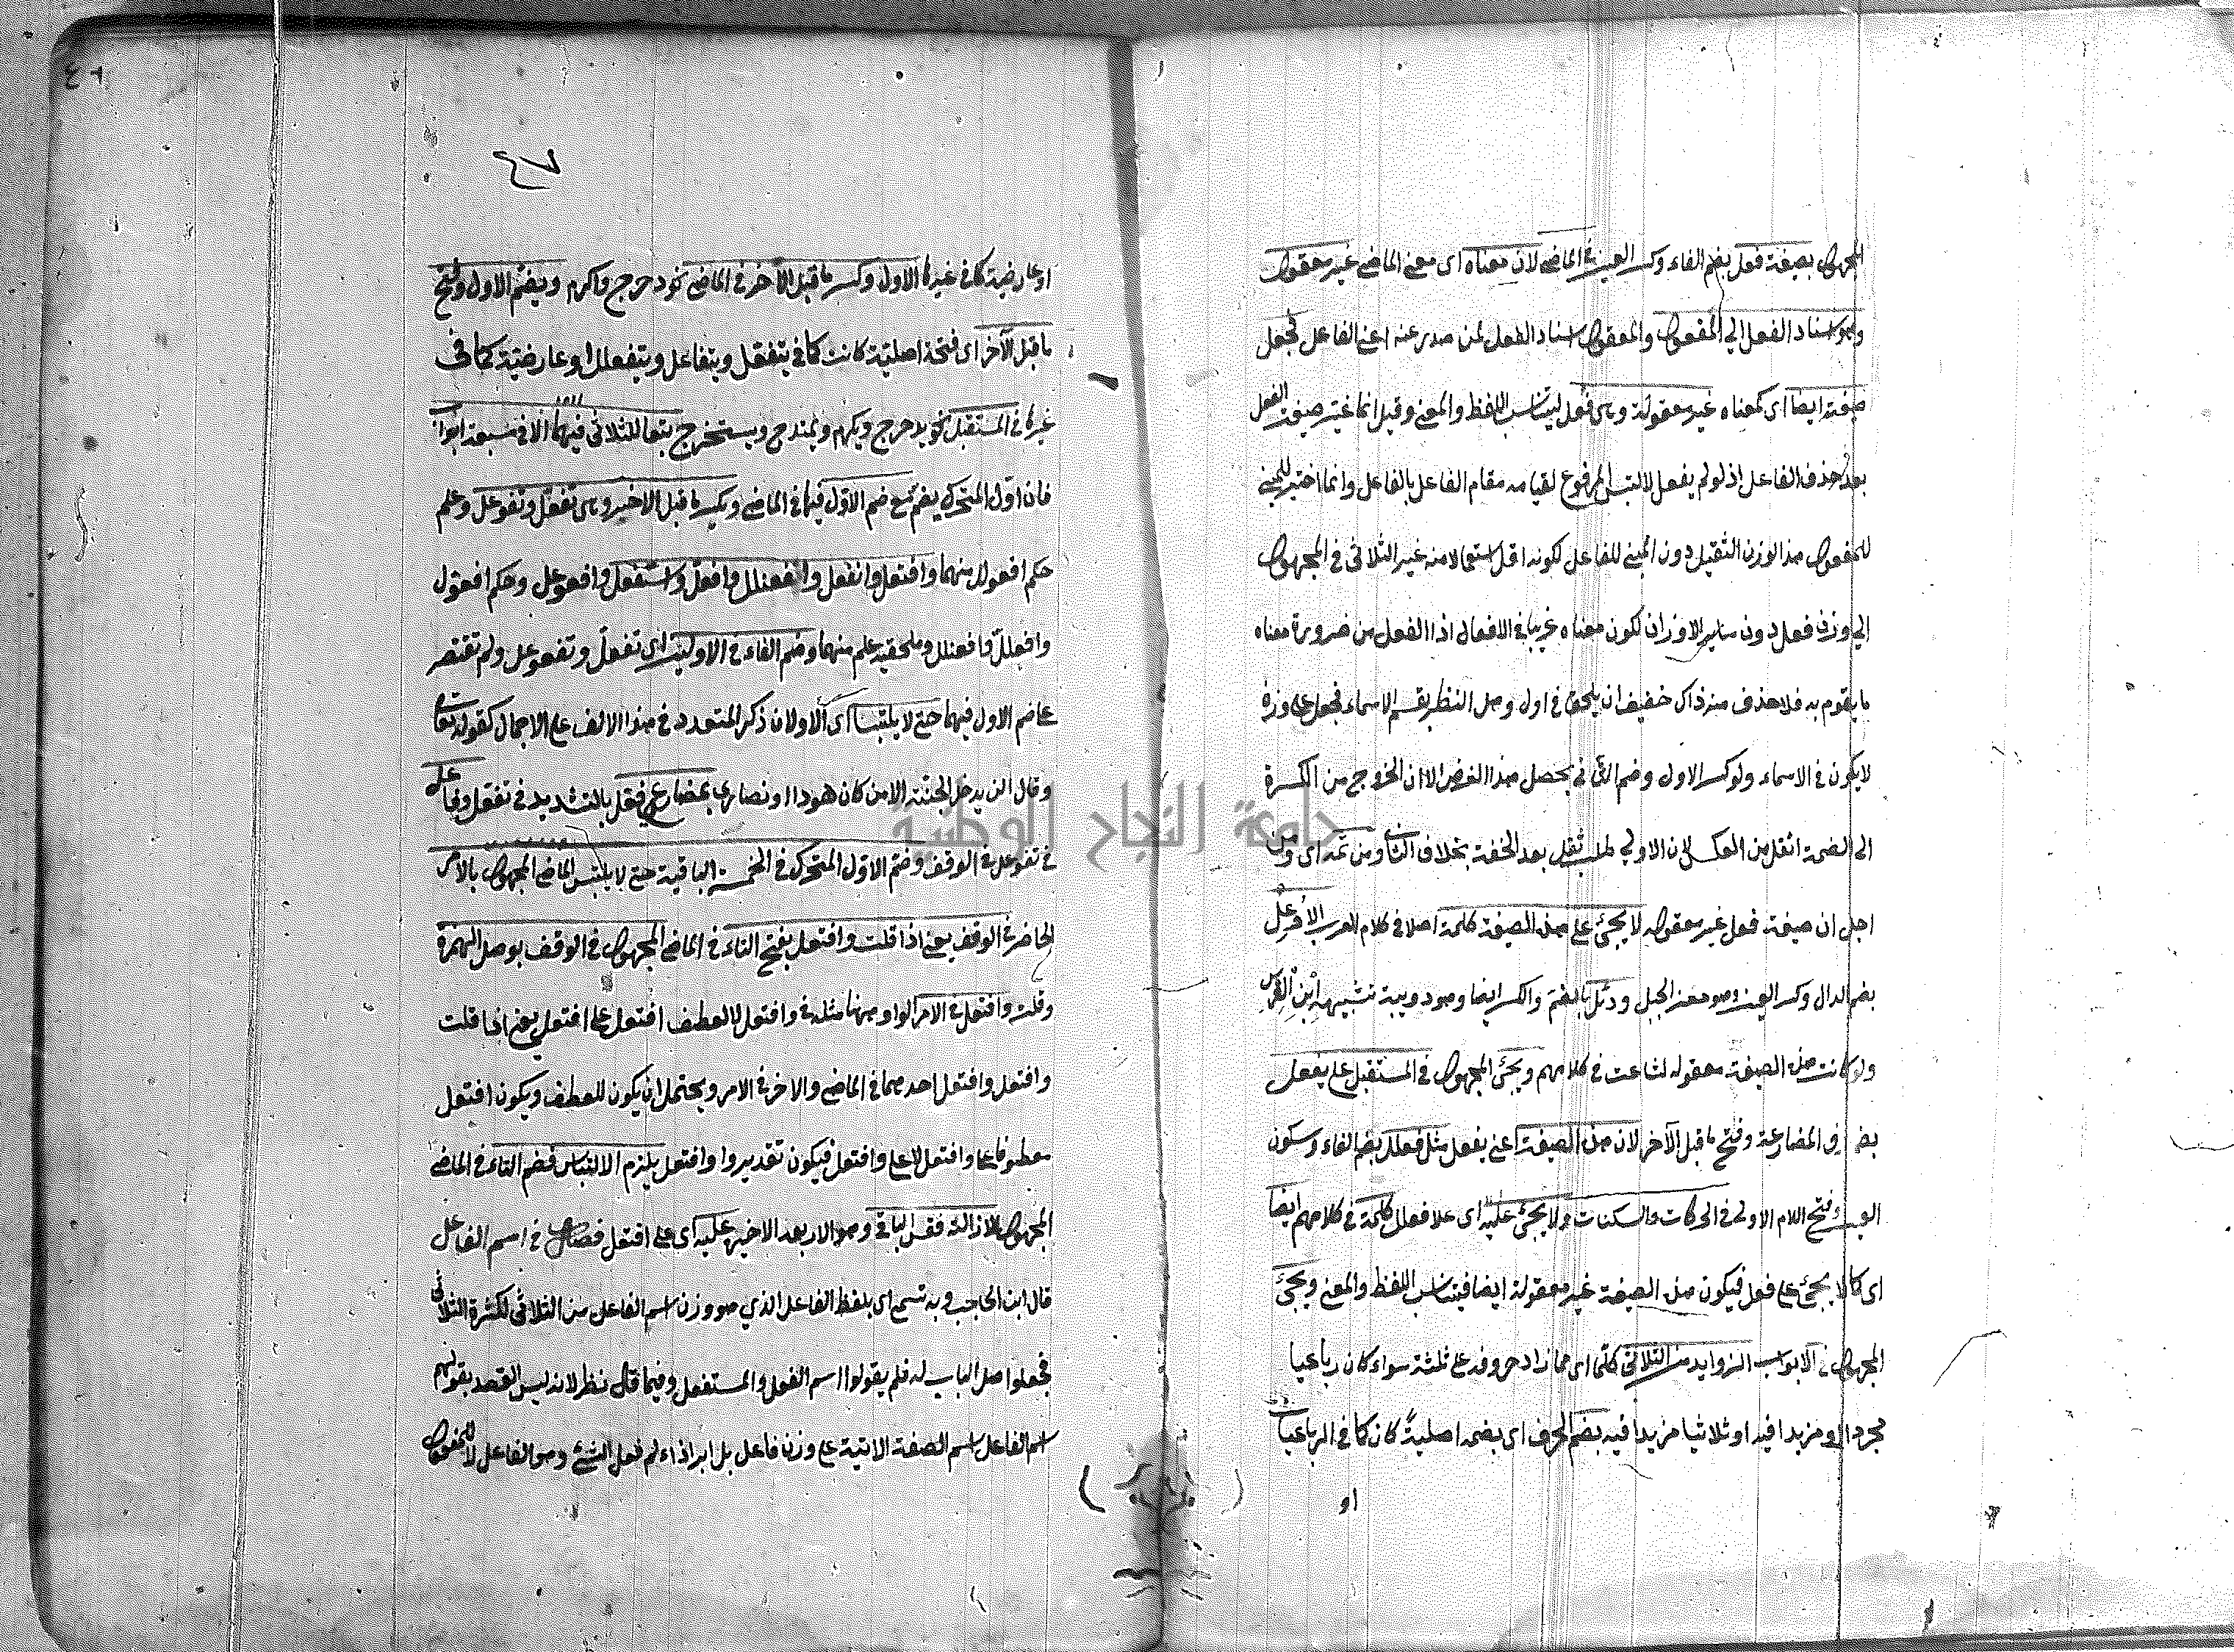 المجهول بصيغة فعل بضم الفاء وكسر العين في الماضي لان معناه اى معنى الماضي غير معقول
وهو اسناد الفعل الي المفعول والمعقول اسناد الفعل لمن صدر عنه اعني الفاعل فجعل
صيغته ايضا اى كمعناه غير معقولة وهى فعل ليتناسب اللفظ والمعنى وقيل انما غير صيغة الفعل
بعد حذف الفاعل اذ لو لم يفعل لالتبس المرفوع لقيامه مقام الفاعل بالفاعل وانما اختير للمبني
للمفعول هذا الوزن الثقيل دون المبني للفاعل لكونه اقل استعمالا منه غير الثلاثي في المجهول
الي وزن فعل دون ساير الاوزان لكون معناه غريبا في الافعال اذ الفعل من ضرورة معناه
ما يقوم به فلما حذف منه ذاك خفيف ان يلحق في اول وهل النظر بقسم الاسماء فجعل على وزن
لا يكون في الاسماء ولو كسر الاول وضم الثاني يحصل هذا الغرض الا ان الخروج من الكسرة
الى الضمة اثقل من العكس لان الاولي طلب ثقل بعد الخفة بخلاف الثاني ومن ثمه اى ومن
اجل ان صيغة فعل غير معقول لا يجئ على هذه الصيغة كلمة اصلا في كلام العرب الا وعل
بضم الدال وكسر العين وهو معز الجبل ودئل بالضم والكسر ايضا وهو دويبة تشبيهه ابن العرس
ولو كانت هذه الصيغة معقوله لشاعت في كلامهم ويجئ المجهول في المستقبل على يفعل
بضم حرف المضارعة وفتح ما قبل الآخر لان هذه الصيغة اعني يفعل مثل فعلل بضم الفاء وسكون
العين وفتح اللام الاولى في الحركات والسكنات ولا يجئ عليه اى على فعلل كلمة في كلامهم ايضا
اى كما لا يجئ على فعل فيكون هذه الصيغة غير معقولة ايضا فيتناسب اللفظ والمعنى ويجئ
المجهول في الابواب الزوايد من الثلاثي كلها اى مما زاد حروفه على ثلثة سواء كان رباعيا
مجردا او مزيدا فيه او ثلاثيا مزيدا فيه بضم الحرف اى بضمه اصلية كان كما في الرباعيات
او
٤٧
او عارضية كما في غيرها الاول وكسر ما قبل الآخر في الماضي نحو دحرج واكرم وبضم الاول وفتح
ما قبل الآخر اى فتحة اصلية كانت كما في يتفعل ويتفاعل ويتفعلل او عارضية كما في
غيرها في المستقبل نحو يدحرج ويكرم ويستخرج تبعا للثلاثي فيهما الا في سبعة ابواب
فان اول المتحرك يضم مع ضم الاول فيها في الماضي ويكسر ما قبل الاخير وهى تفعل وتفوعل وعلم
حكم افعول منهما وافتعل وانفعل وافعنلل وافعل واستفعل وافعوعل وحكم افعول
وافعلل وافعنلل وملحقيه علم منهما وضم الفاء في الاوليين اى تفعل وتفوعل ولم تقتصر
على ضم الاول فيهما حتى لا يلتبسا اى الاولان ذكر المتعدد في هذا الالف على الاجمال كقوله تعالى
وقال الن يدخل الجنة الا من كان هودا او نصارى بمضارعي فعل بالتشديد في تفعل وفاعل
في تفوعل في الوقف وضم الاول المتحرك في الخمسة الباقية حتى لا يلتبس الماضي المجهول بالامر
الحاضر في الوقف يعني اذا قلت وافتعل بفتح التاء في الماضي المجهول في الوقف بوصل الهمزة
وقلت وافتعل في الامر الواو منها مثله في وافتعل لا لعطف افتعل على افتعل يعني اذا قلت
وافتعل وافتعل احدهما في الماضي والاخر في الامر ويحتمل ان يكون للعطف ويكون افتعل
معطوفا على وافتعل لا على وافتعل فيكون تقديره وافتعل يلزم الالتباس فضم التاء في الماضي
المجهول لازالته فقس الباقي وهو الاربعة الاخير عليه اى على افتعل فصل في اسم الفاعل
قال ابن الحاجب وبه تسمى اى بلفظ الفاعل الذي هو وزن اسم الفاعل من الثلاثي لكثرة الثلاثي
فجعلوا اصل الباب له فلم يقولوا اسم المفعل والمستفعل وفيما قال نظر لانه ليس القصد بقولهم
اسم الفاعل اسم الصفة الاتية على وزن فاعل بل ابراز اسم فعل الشئ وهو الفاعل لا المفعول
جامعة النجاح الوطنية